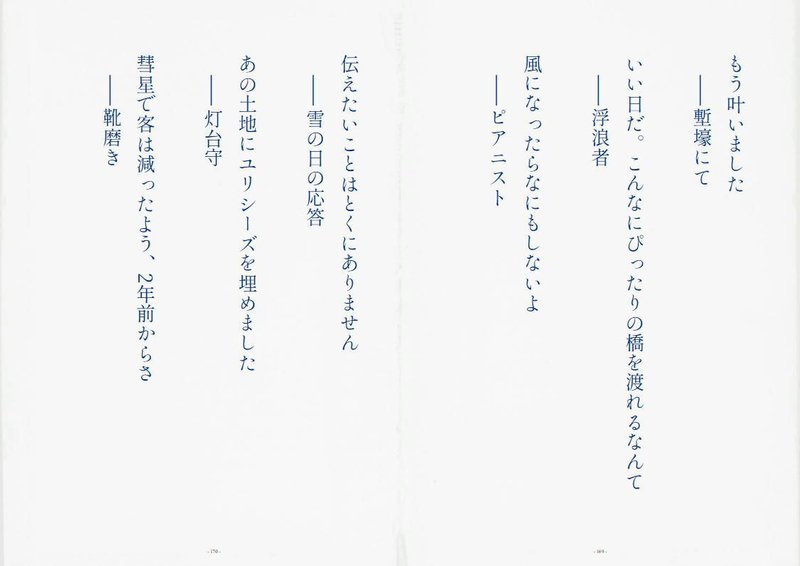 もう叶いました
──塹壕にて
いい日だ。こんなにぴったりの橋を渡れるなんて
──浮浪者
風になったらなにもしないよ
──ピアニスト
- 169 -
伝えたいことはとくにありません
──雪の日の応答
あの土地にユリシーズを埋めました
──灯台守
彗星で客は減ったよう、2年前からさ
──靴磨き
- 170 -